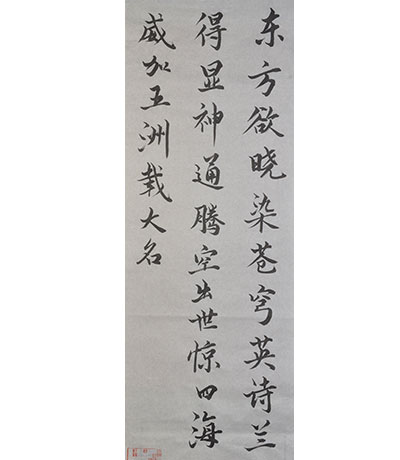 东方欲晓染苍穹英诗兰
得显神通腾空出世惊四海
威加五洲载大名